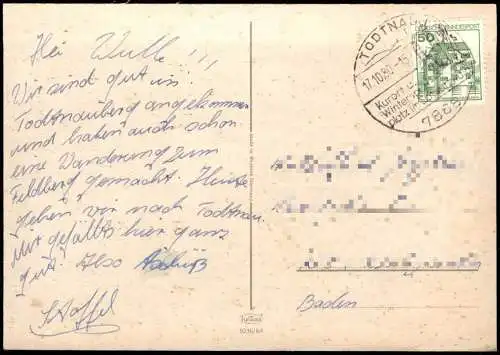 Hei Wulle!!!
Wir sind gut in
Todtnauberg angekommen
und haben auch schon
eine Wanderung zum
Feldberg gemacht. Heute
gehen wir nach Todtnau.
Mir gefällts hier ganz
gut! Also
Staffel
TODTNAU
17.10.80-15
Kurort u.
Winter
platz
7868
50
BUNDESPOST
Baden